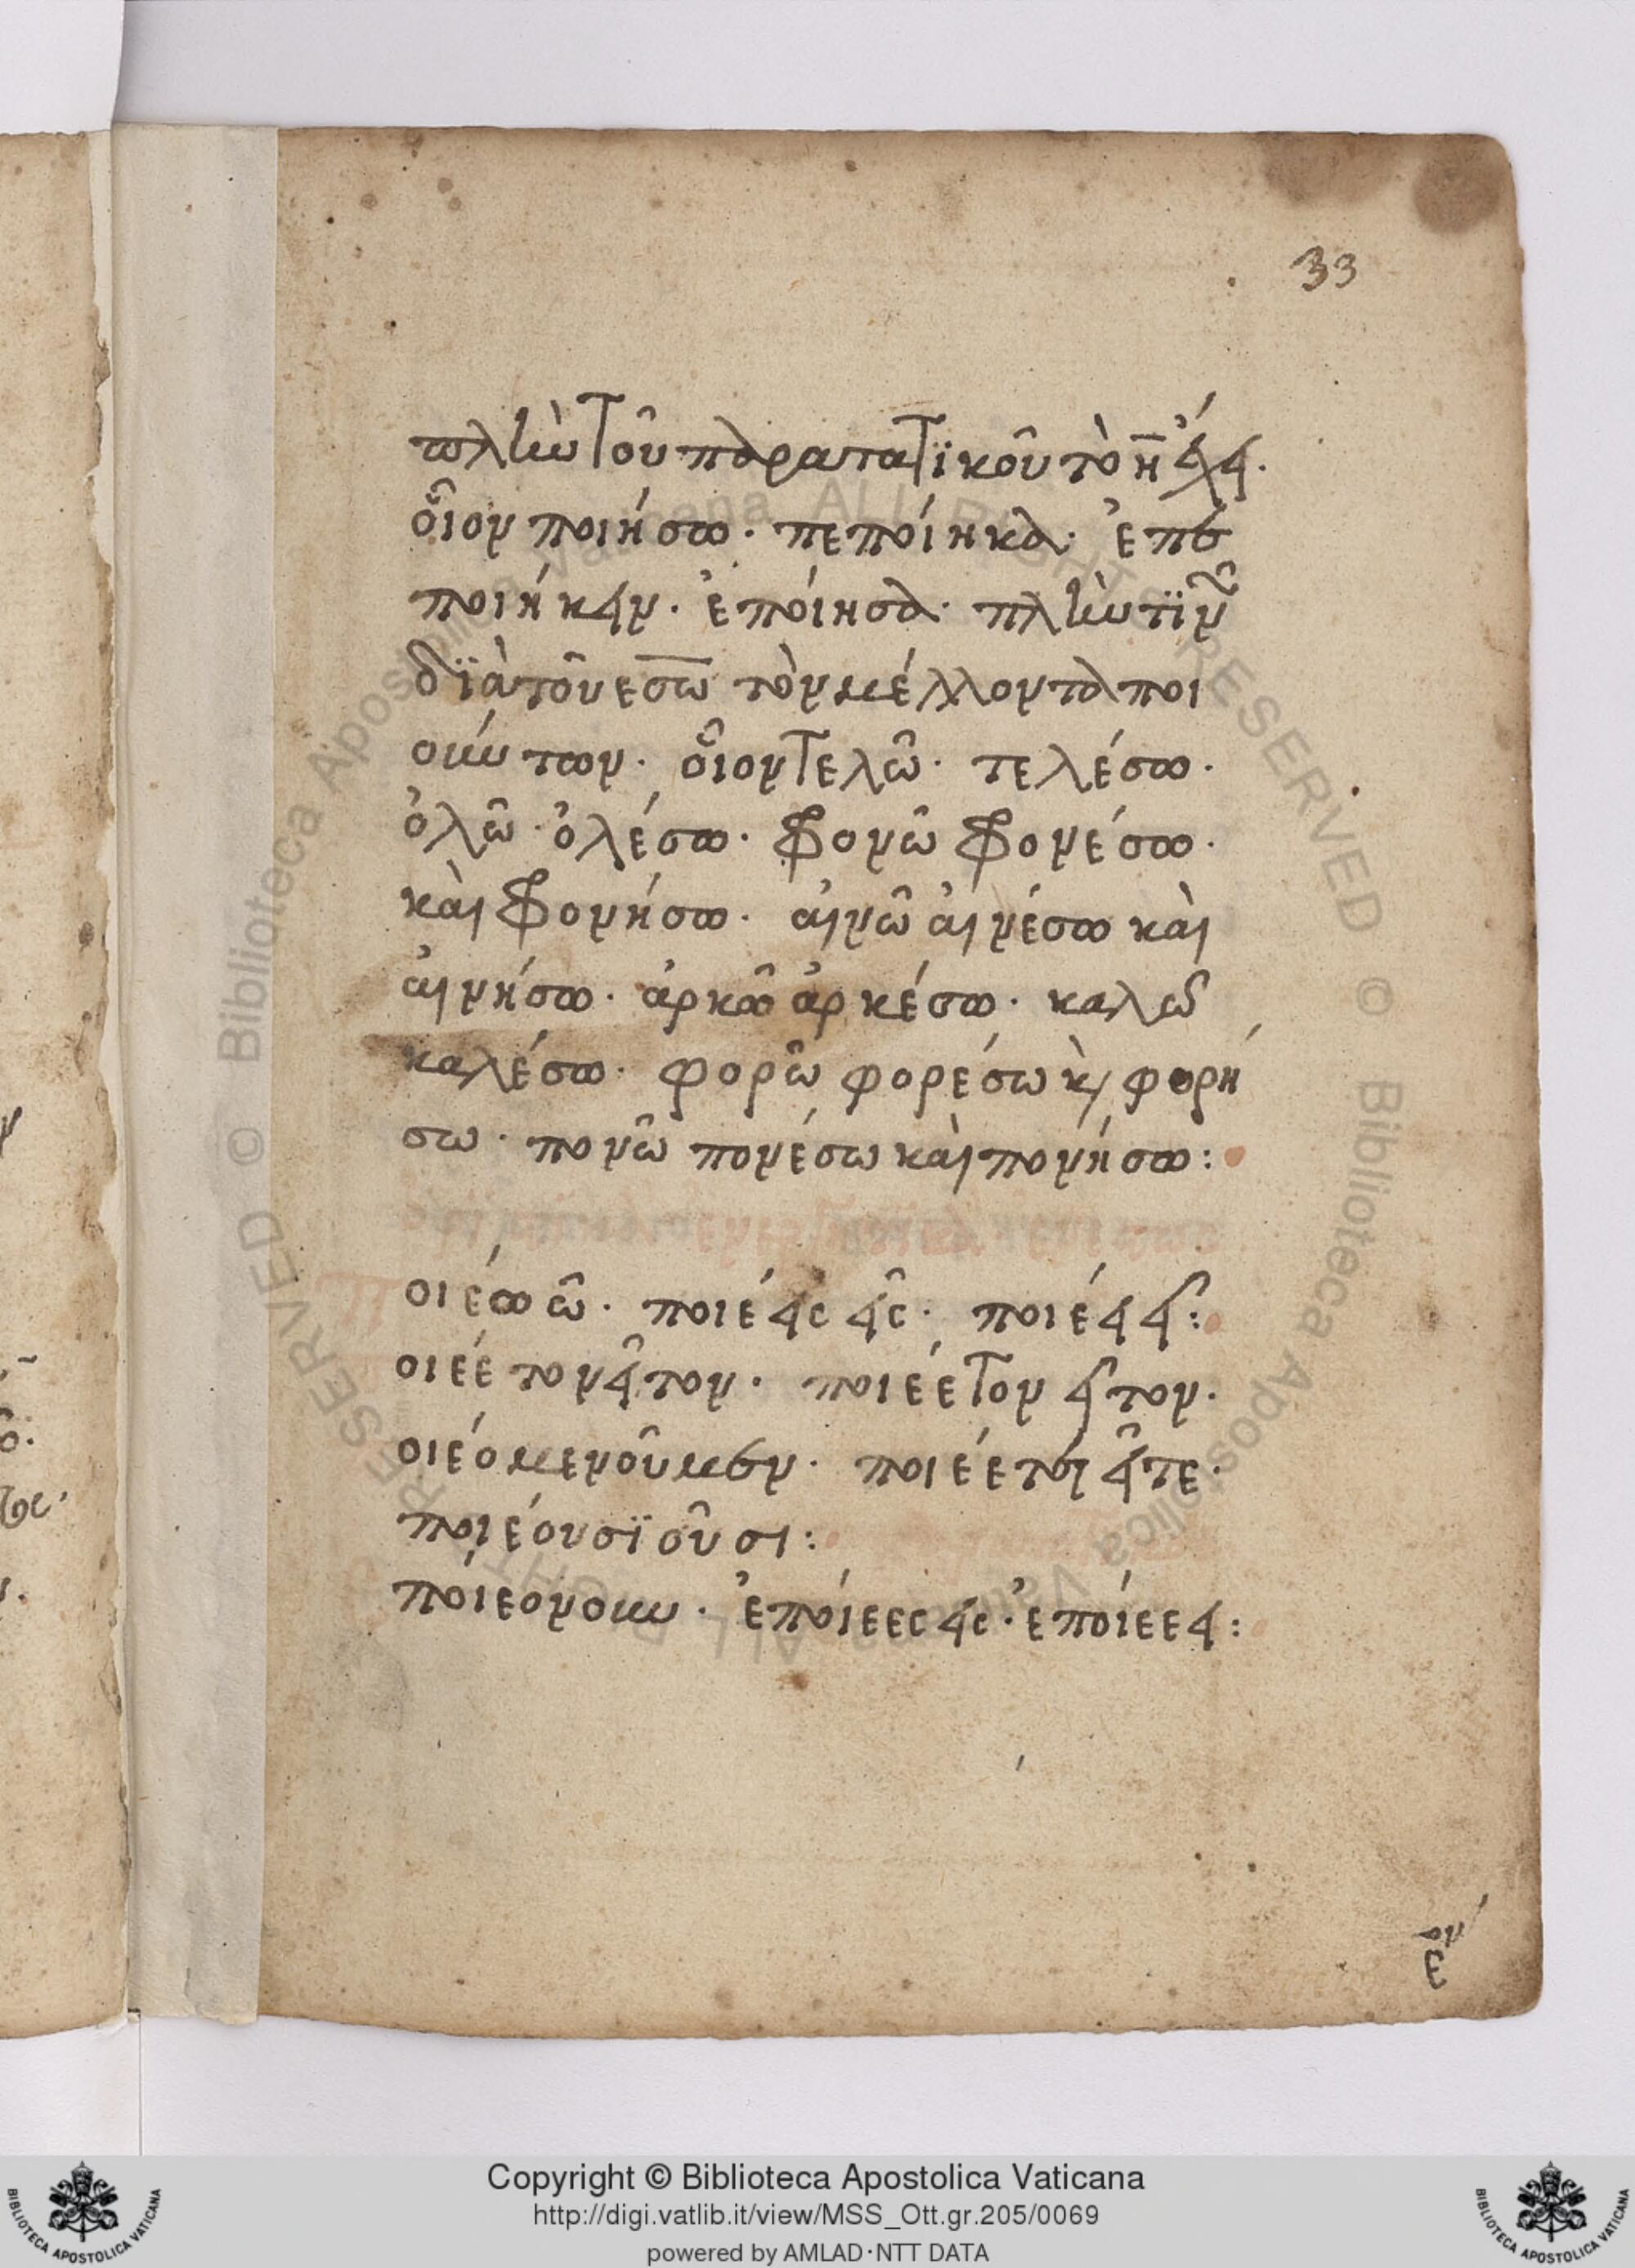 33
πλὴν τοῦ παρατατικοῦ τὸ η ἔχει.
οἷον ποιήσω. πεποίηκα. ἐπε
ποιήκειν. ἐποίησα. πλὴν τινῶν
διὰ τοῦ εσω τὸν μέλλοντα ποι
ούντων. οἷον τελῶ. τελέσω.
ὀλῶ. ὀλέσω. φθονῶ φθονέσω.
καὶ φθονήσω. αἰνῶ αἰνέσω καὶ
αἰνήσω. ἀρκῶ ἀρκέσω. καλῶ
καλέσω. φορῶ φορέσω κὶ φορή
σω. πονῶ πονέσω καὶ πονήσω:
οιέω ῶ. ποιέεις εῖς. ποιέει εῖ:
οιέετον εῖτον. ποιέετον εῖτον.
οιέομεν οῦμεν. ποιέεται εῖτε.
ποιέουσϊ οῦσι:
ποίεον ουν. ἐποίεες εις. ἐποίεε ει:
Copyright © Biblioteca Apostolica Vaticana
http://digi.vatlib.it/view/MSS_Ott.gr.205/0069
powered by AMLAD·NTT DATA
BIBLIOTECA APOSTOLICA VATICANA
BIBLIOTECA APOSTOLICA VATICANA